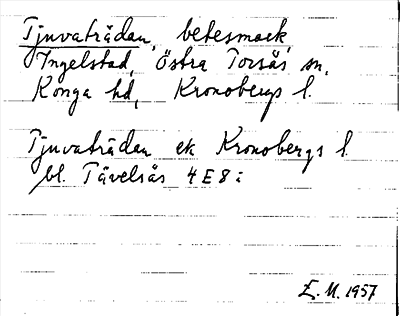 Tjuvaträdan, betesmark,
Ingelstad, Östra Torsås sn,
Konga hd, Kronobergs l.
Tjuvaträdan ek Kronobergs l.
bl. Tävelsås 4E8:
E.M. 1957